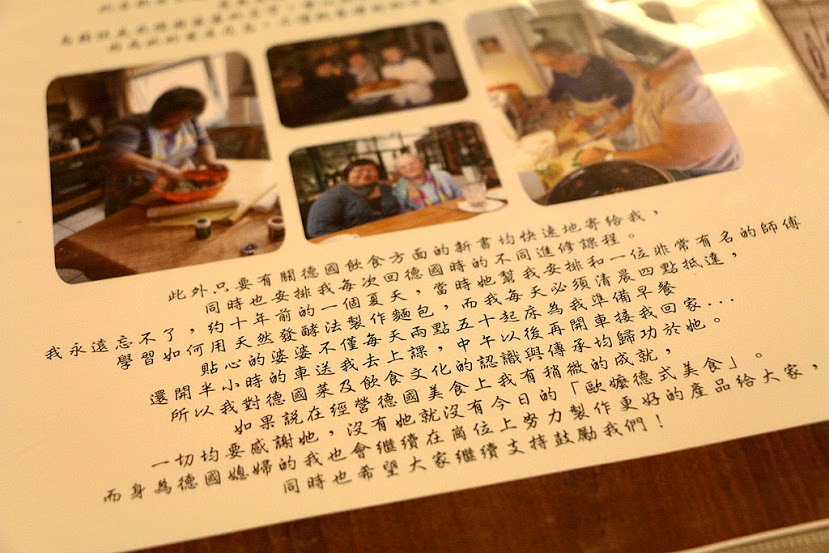 此外只要有關德國飲食方面的新書均快速地寄給我，
同時也安排我每次回德國時的不同進修課程。
我永遠忘不了，約十年前的一個夏天，當時她幫我安排和一位非常有名的師傅
學習如何用天然發酵法製作麵包，而我每天必須清晨四點抵達，
貼心的婆婆不僅每天兩點五十起床為我準備早餐
還開半小時的車送我去上課，中午以後再開車接我回家...
所以我對德國菜及飲食文化的認識與傳承均歸功於她。
如果說在經營德國美食上我有稍微的成就，
一切均要感謝她，沒有她就沒有今日的「歐嬤德式美食」。
而身為德國媳婦的我也會繼續在崗位上努力製作更好的產品給大家，
同時也希望大家繼續支持鼓勵我們！